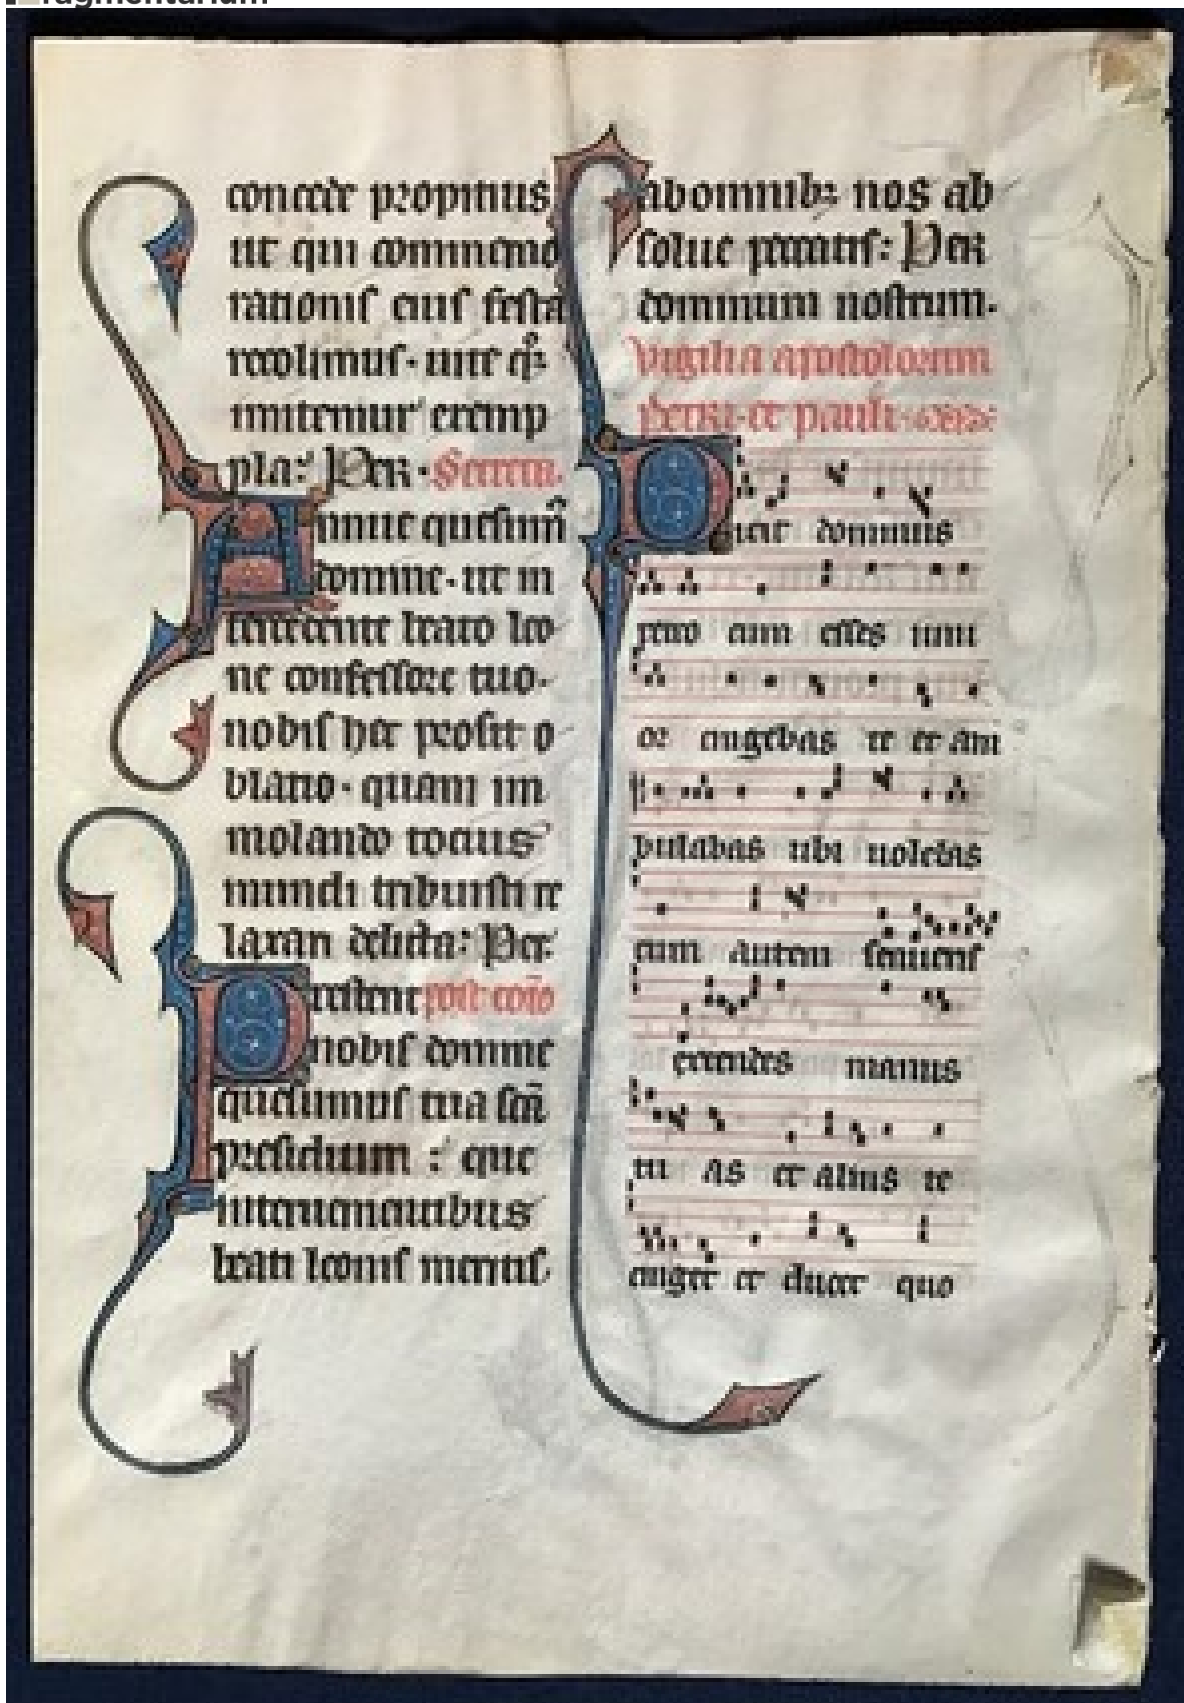 ragmentarium
concede propitius
ut qui commemo
rationis eius festa
recolimus· uite q̄ꝫ
imitemur exemp
pla: Per· Secreta.
Annue quesum̄
domine· ut in
tercedente beato leo
ne confessore tuo·
nobis hec prosit o
blatio· quam im
molando tocius
mundi tribuisti re
laxari delicta: Per
Prestent post cōio
nobis domine
quesumus tua sc̄a
presidium : que
interuenientibus
beati leonis meritis
ab omnibꝫ nos ab
solue peccatis: Per
dominum nostrum·
Vigilia apostolorum
petri· et pauli·
Dicit dominus
petro cum esses iuni
or cingebas te et am
bulabas ubi uolebas
cum autem senueris
extendes manus
tu as et alius te
cinget et ducet quo